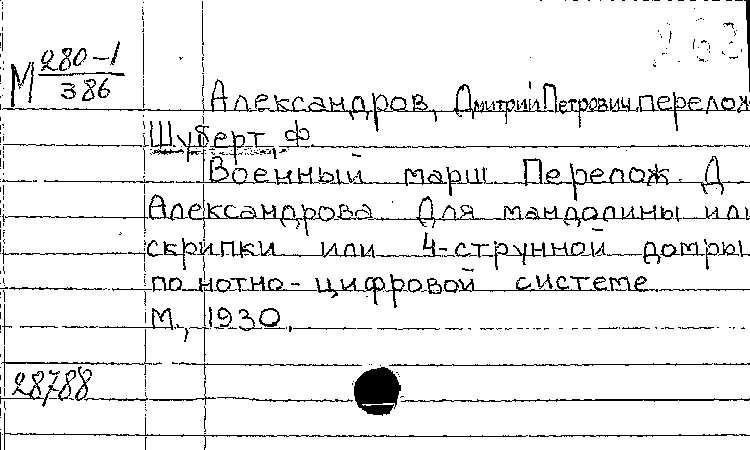 263
М 280-1
386
Александров, Дмитрий Петрович, перелож
Шуберт, Ф
Военный марш Перелож. Д
Александрова Для мандолины или
скрипки или 4-струнной домры
по нотно-цифровой системе
М., 1930.
28788